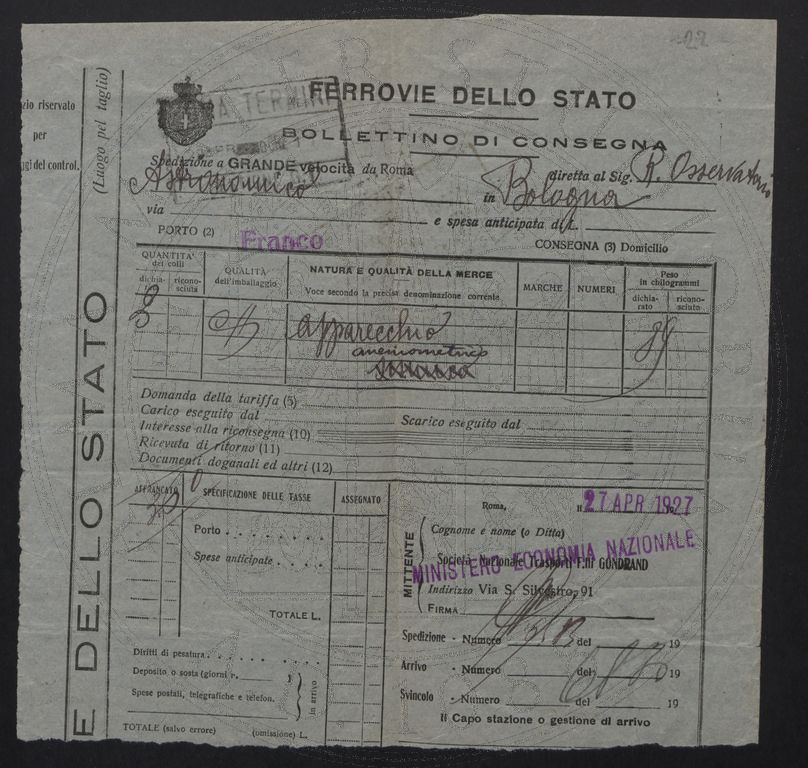 22
zio riservato
per
gi del control.
(Luogo pel taglio)
E DELLO STATO
A TERMINI
FERROVIE DELLO STATO
BOLLETTINO DI CONSEGNA
Spedizione a GRANDE velocità da Roma
diretta al Sig. R. Osservatorio
Astronomico in Bologna
via e spesa anticipata di L.
PORTO (2) Franco CONSEGNA (3) Domicilio
QUANTITA' dei colli
dichia- rata
ricono- sciuta
QUALITÀ dell'imballaggio
NATURA E QUALITÀ DELLA MERCE
Voce secondo la precisa denominazione corrente
MARCHE
NUMERI
Peso in chilogrammi
dichia- rato
ricono- sciuto
apparecchio
anemometrico
Domanda della tariffa (5)
Carico eseguito dal Scarico eseguito dal
Interesse alla riconsegna (10)
Ricevuta di ritorno (11)
Documenti doganali ed altri (12)
AFFRANCATO
SPECIFICAZIONE DELLE TASSE
ASSEGNATO
Porto
Spese anticipate
TOTALE L.
Diritti di pesatura
Deposito o sosta (giorni
Spese postali, telegrafiche e telefon.
in arrivo
TOTALE (salvo errore) (omissione) L.
Roma, li 27 APR 1927
MITTENTE
Cognome e nome (o Ditta)
Società Nazionale Trasporti F.lli GONDRAND
MINISTERO ECONOMIA NAZIONALE
Indirizzo Via S. Silvestro, 91
FIRMA
Spedizione - Numero del 19
Arrivo - Numero del 19
Svincolo - Numero del 19
Il Capo stazione o gestione di arrivo